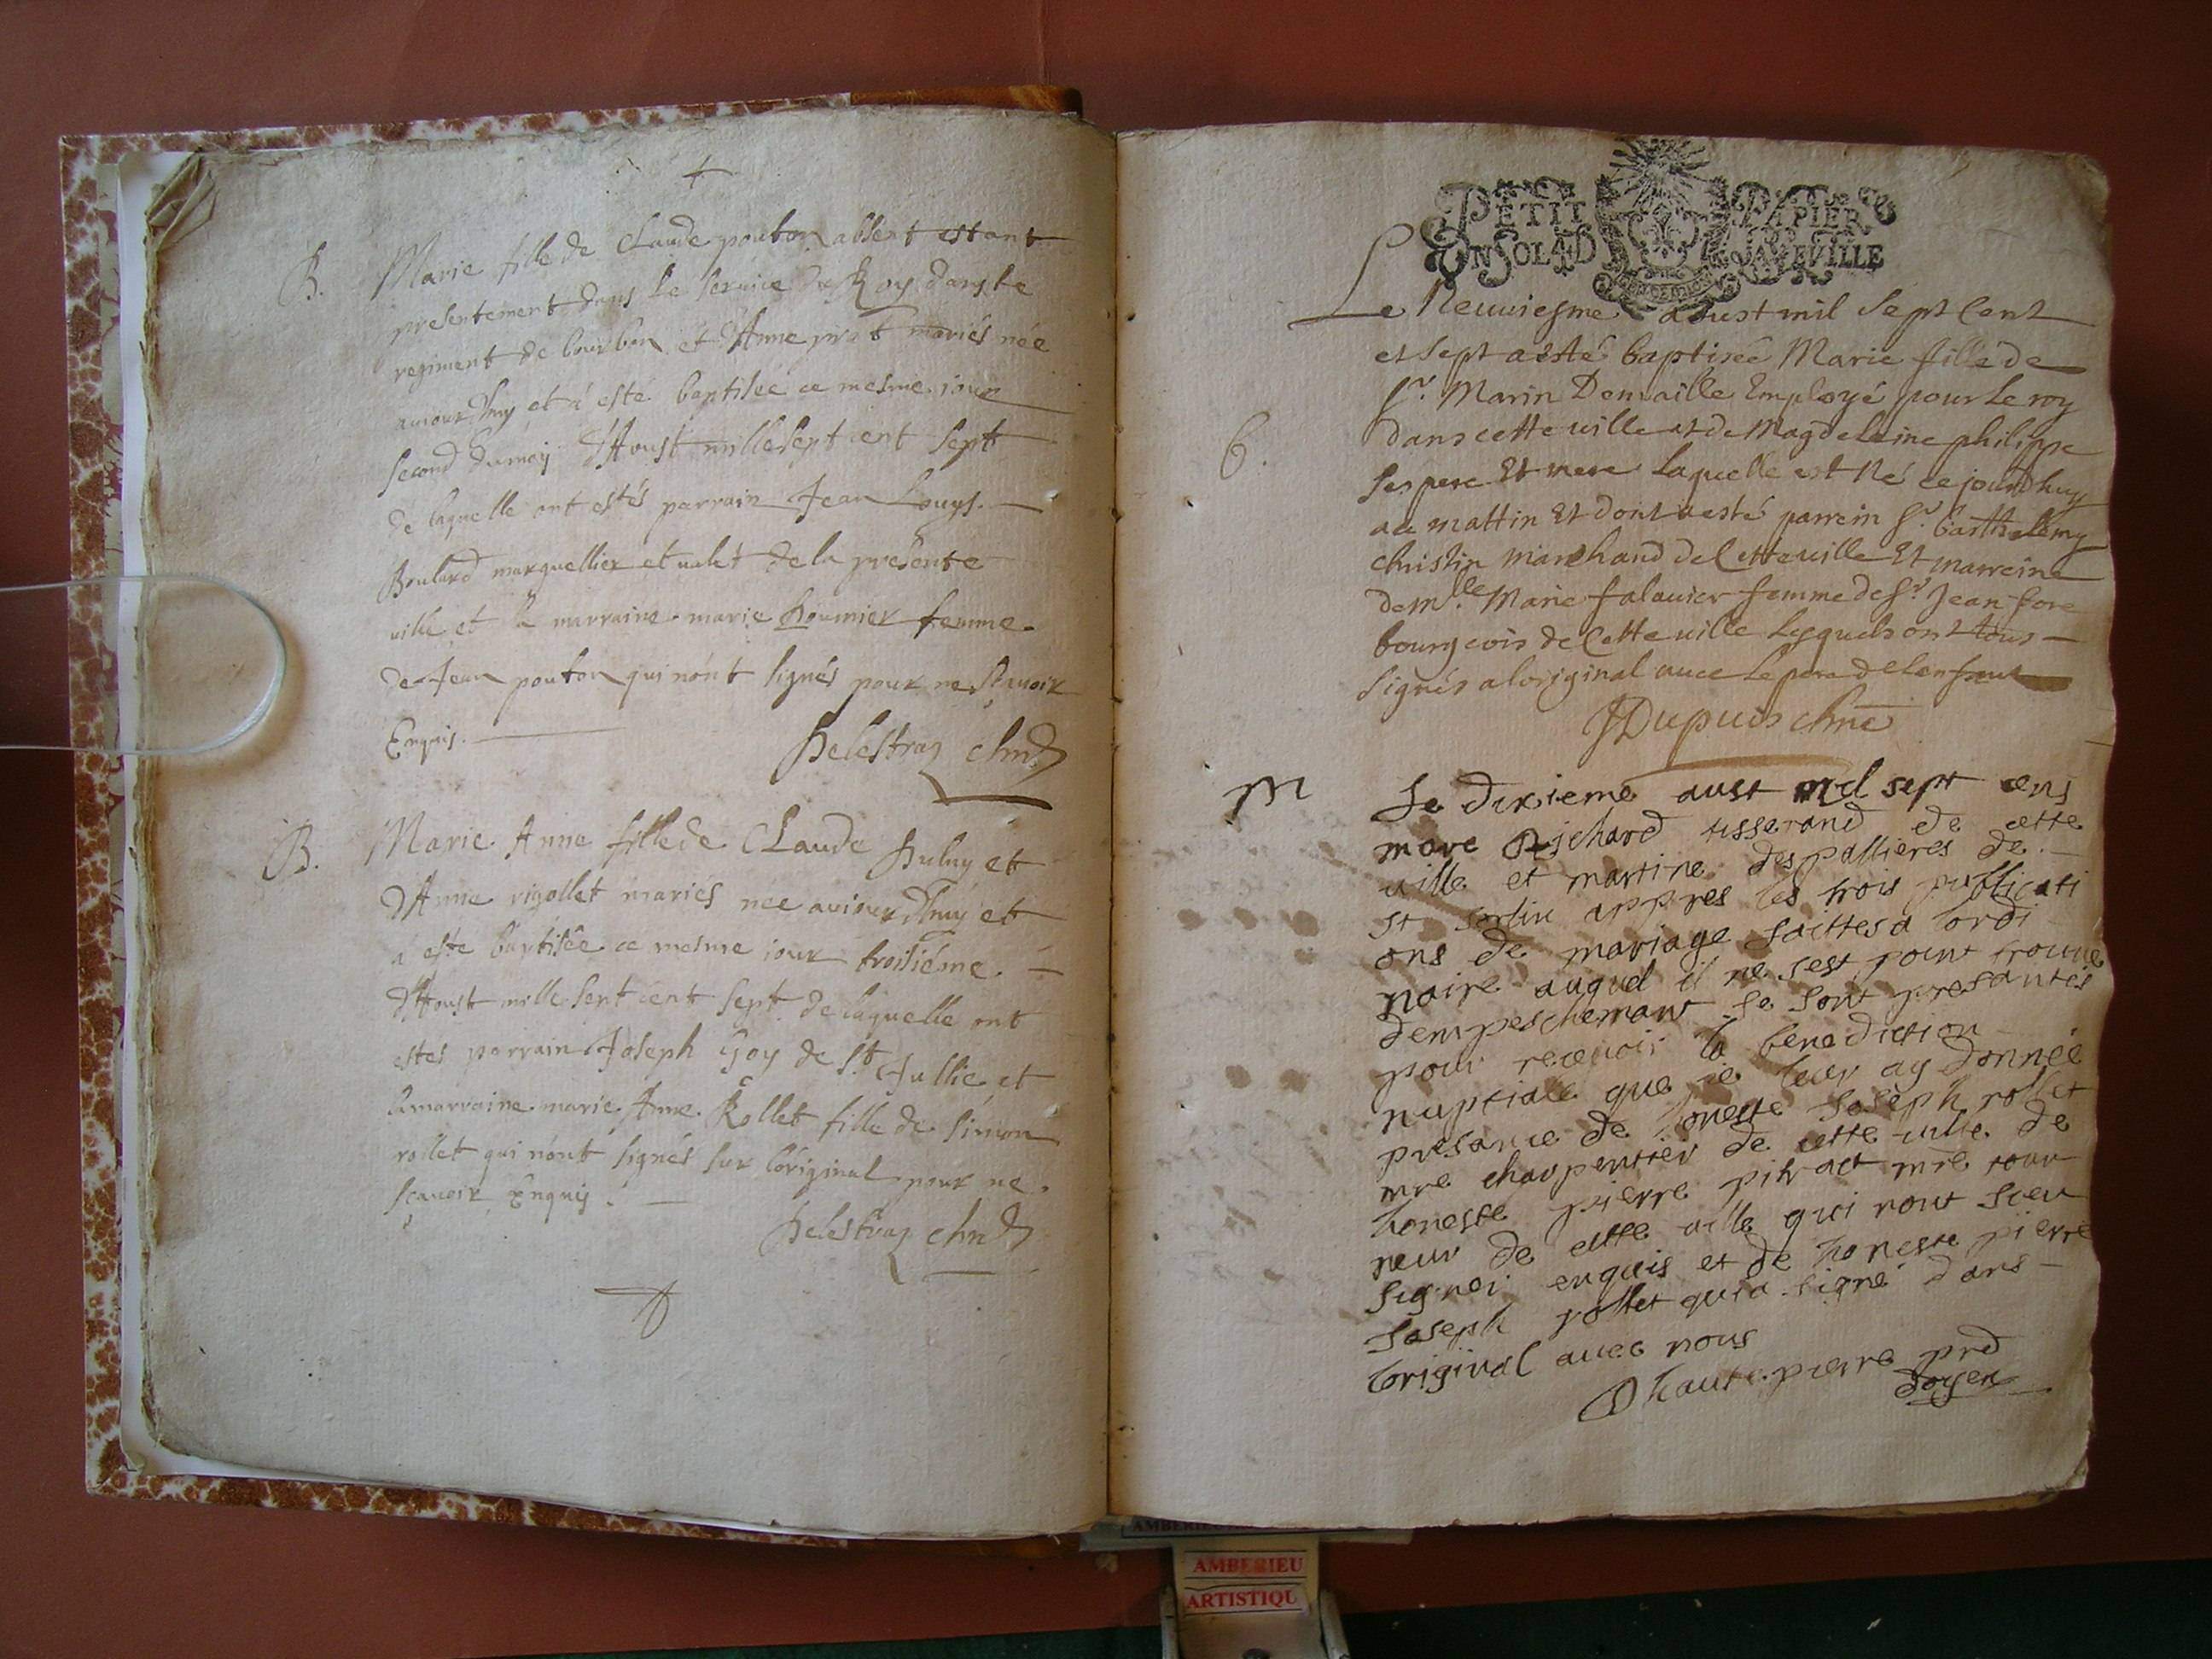 B. Marie fille de Claude pouton absent estant
presentement dans le seruice du Roy dans le
regiment de bourbon et d'Anne prat mariés née
auiourdhuy et à esté baptisée ce mesme iour
second du moy d'Aoust mille sept cent sept
de laquelle ont estés parrain Jean Louys
Boulard marguellier et valet de la presente
ville et la marraine marie fournier femme
de Jean pouton qui nónt signés pour ne sçauoir
Enquis.
Delestraz
B. Marie Anne fille de CLaude et
d'Anne rigollet mariés née auiourdhuy et
à esté baptisée ce mesme iour troisiéme
d'Aoust mille sept cent sept de laquelle ont
estes parrain Joseph Goy de St Jullie et
la marraine marie Anne Rollet fille de simon
rollet qui nónt signés sur lóriginal pour ne
sçauoir Enquis.
Delestraz
PETIT PAPIER
UN SOL 4 D LA FEVILLE
Le Neuuiesme aoust mil sept cent
et sept a esté baptisée Marie fille de
Sr. Marin Employé pour Le roy
6. dans cette uille et de Magdeleine philippe
ses pere Et mere Laquelle est Né ce jourdhuy
au mattin Et dont a esté parrein Sr. barthelemy
christin marchand de Cette uille Et marreine
demlle. Marie falauier femme de Sr. Jean fore
bourgeois de Cette uille Lesquels ont tous
signés a loriginal auec Le pere de lenfent
JDupuis chne
M Le dixieme aust mil sept cens
marc Richard tisserand de cette
uille et martine despallieres de
st sorlin appres les trois publicati
ons de mariage faittes a lordi
naire auquel il ne sest point trouué
dempeschemant se sont presantés
pour receuoir la benediction
nuptiale que je leur ay donnée
presance de honeste Joseph rollet
mre charpentier de cette uille de
honeste pierre pitract mre tour
neur de cette uille qui nont sceu
signer enquis et de honeste pierre
Joseph rollet qui a signé dans
loriginal auec nous
Dhautepierre prd
doyen
AMBERIEU
ARTISTIQU